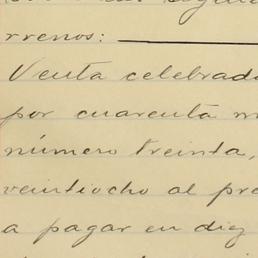 rrenos:
Venta celebrada
por cuarenta m
número treinta,
veintiocho al pre
a pagar en diez